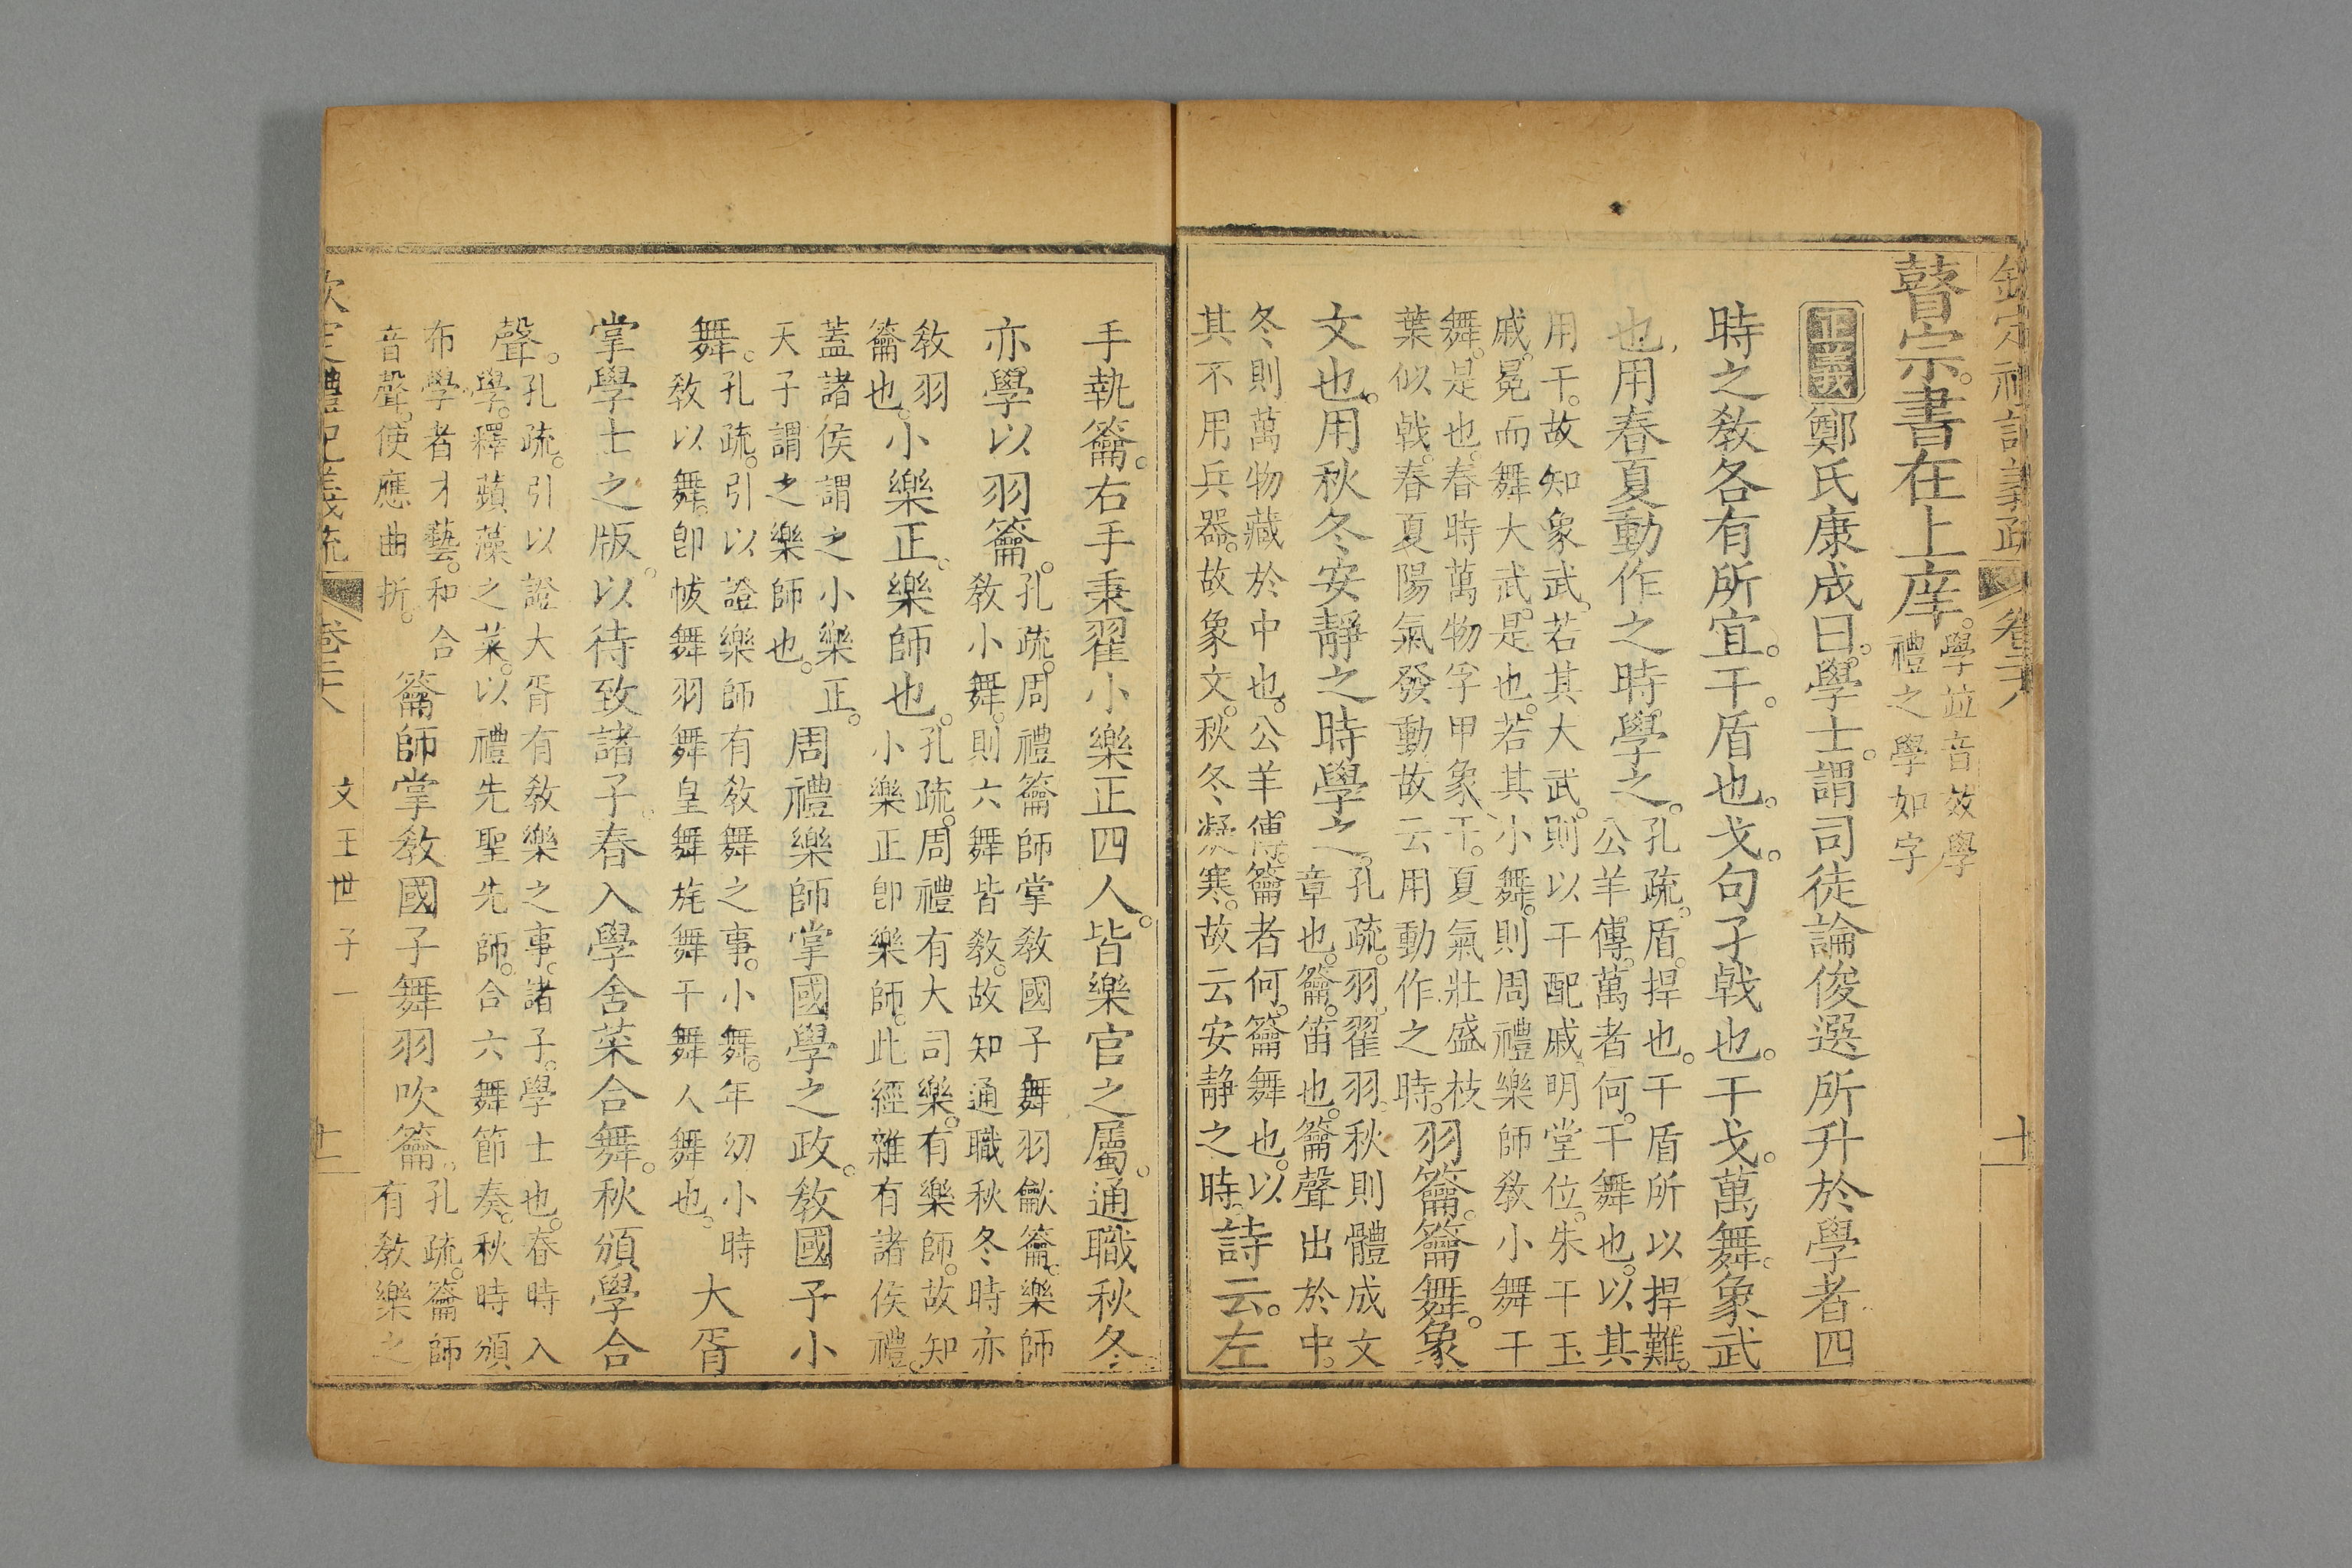 欽定禮記義疏 卷二十八 十
瞽宗。書在上庠。學竝音效學
禮之學如字
正義 鄭氏康成曰。學士。謂司徒論俊選所升於學者四
時之敎各有所宜。干。盾也。戈。句孑戟也。干戈。萬舞。象武
也。用春夏動作之時。學之。孔疏。盾。捍也。干盾所以捍難。
公羊傳。萬者何。干舞也。以其
用干。故知象武。若其大武。則以干配戚。明堂位。朱干玉
戚。冕而舞大武。是也。若其小舞。則周禮樂師敎小舞干
舞。是也。春時萬物孚甲象干。夏氣壯盛枝
葉似戟。春夏陽氣發動故云用動作之時。羽籥。籥舞。象
文也。用秋冬安靜之時學之。孔疏。羽。翟羽。秋則體成文
章也。籥。笛也。籥聲出於中。
冬則萬物藏於中也。公羊傳。籥者何。籥舞也。以
其不用兵器。故象文。秋冬凝寒。故云安靜之時。詩云。左
手執籥。右手秉翟小樂正四人。皆樂官之屬。通職秋冬
亦學以羽籥。孔疏。周禮籥師掌敎國子舞羽龡籥。樂師
敎小舞。則六舞皆敎。故知通職秋冬時亦
敎羽
籥也。小樂正。樂師也。孔疏。周禮有大司樂。有樂師。故知
小樂正卽樂師。此經雜有諸侯禮。
蓋諸侯謂之小樂正。
天子謂之樂師也。周禮樂師掌國學之政。敎國子小
舞。孔疏。引以證樂師有敎舞之事。小舞。年幼小時
敎以舞。卽帗舞羽舞皇舞旄舞干舞人舞也。大胥
掌學士之版。以待致諸子。春入學舍菜合舞。秋頒學合
聲。孔疏。引以證大胥有敎樂之事。諸子。學士也。春時入
學。釋蘋藻之菜。以禮先聖先師。合六舞節奏。秋時頒
布學者才藝。和合
音聲。使應曲折。籥師掌敎國子舞羽吹籥。孔疏。籥師
有敎樂之
欽定禮記義疏 卷二十八 文王世子一